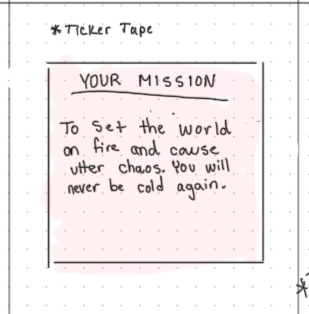 * Ticker Tape
YOUR MISSION
To set the world
on fire and cause
utter chaos. You will
never be cold again.
*